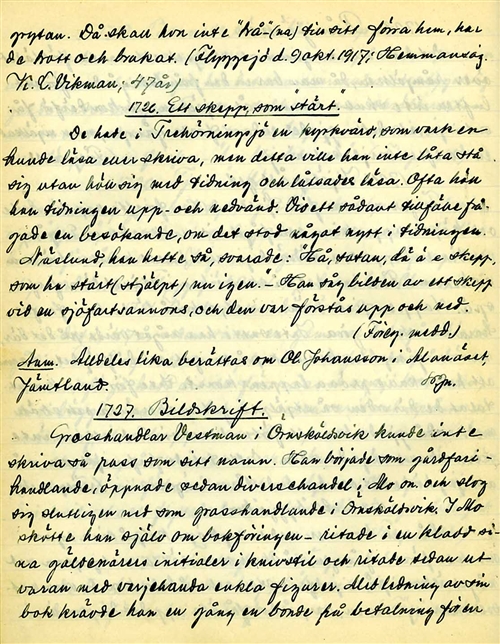 grytan. Då skall hon inte "trå"-(na) till sitt förra hem, har
de trott och brukat. (Flyggsjö d. 9 okt. 1917; Hemmansäg.
K. L. Vikman; 47 år)
1726. Ett skepp, som "stärt".
De hade i Trehörningsjö en kyrkvärd, som varken
kunde läsa eller skriva, men detta ville han inte låta stå
sig utan höll sig med tidning och låtsades läsa. Ofta höll
han tidningen upp- och nedvänd. Vid ett sådant tillfälle frå-
gade en besökande, om det stod något nytt i tidningen.
Näslund, han hette så, svarade: "Hå, satan, dä ä e skepp,
som ha stärt (stjälpt) nu igen." - Han såg bilden av ett skepp
vid en sjöfartsannons, och den var förstås upp och ned.
(Föreg. medd.)
Anm. Alldeles lika berättas om Ol. Johansson i Alanäset,
Jämtland.
1727. Bildskrift.
Grosshandlar Vestman i Örnsköldsvik kunde inte
skriva så pass som sitt namn. Han började som gårdfari-
handlande, öppnade sedan diversehandel i Mo on. och slog
sig slutligen ned som grosshandlande i Örnsköldsvik. I Mo
skötte han själv om bokföringen - ritade i en kladd si-
na gäldenärers initialer i knivstil och ritade sedan ut
varan med varjehanda enkla figurer. Med ledning av sin
bok krävde han en gång en bonde på betalning för en